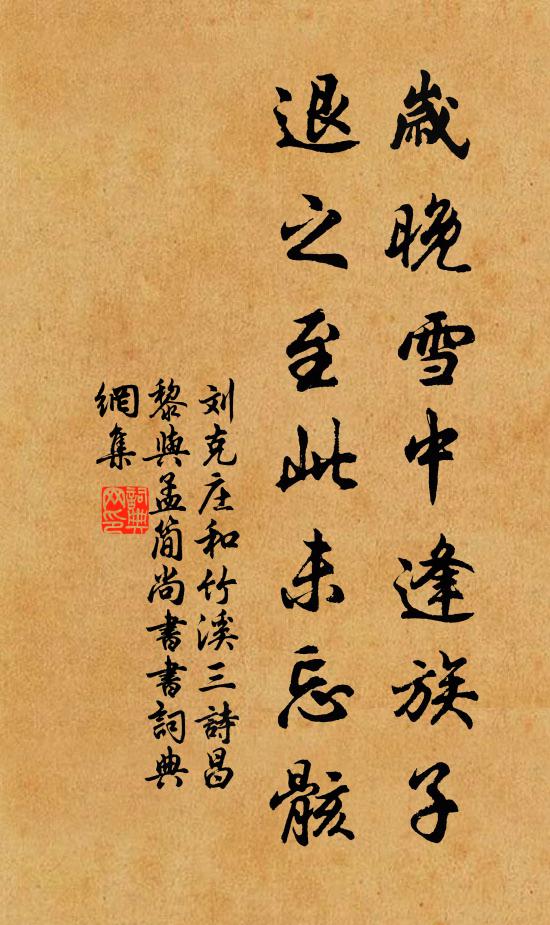 歲晚雪中逢族子
退之至此未忘骸
刘克庄和竹溪三詩昌
黎與孟简尚書書詞典
網集
詞典
网印